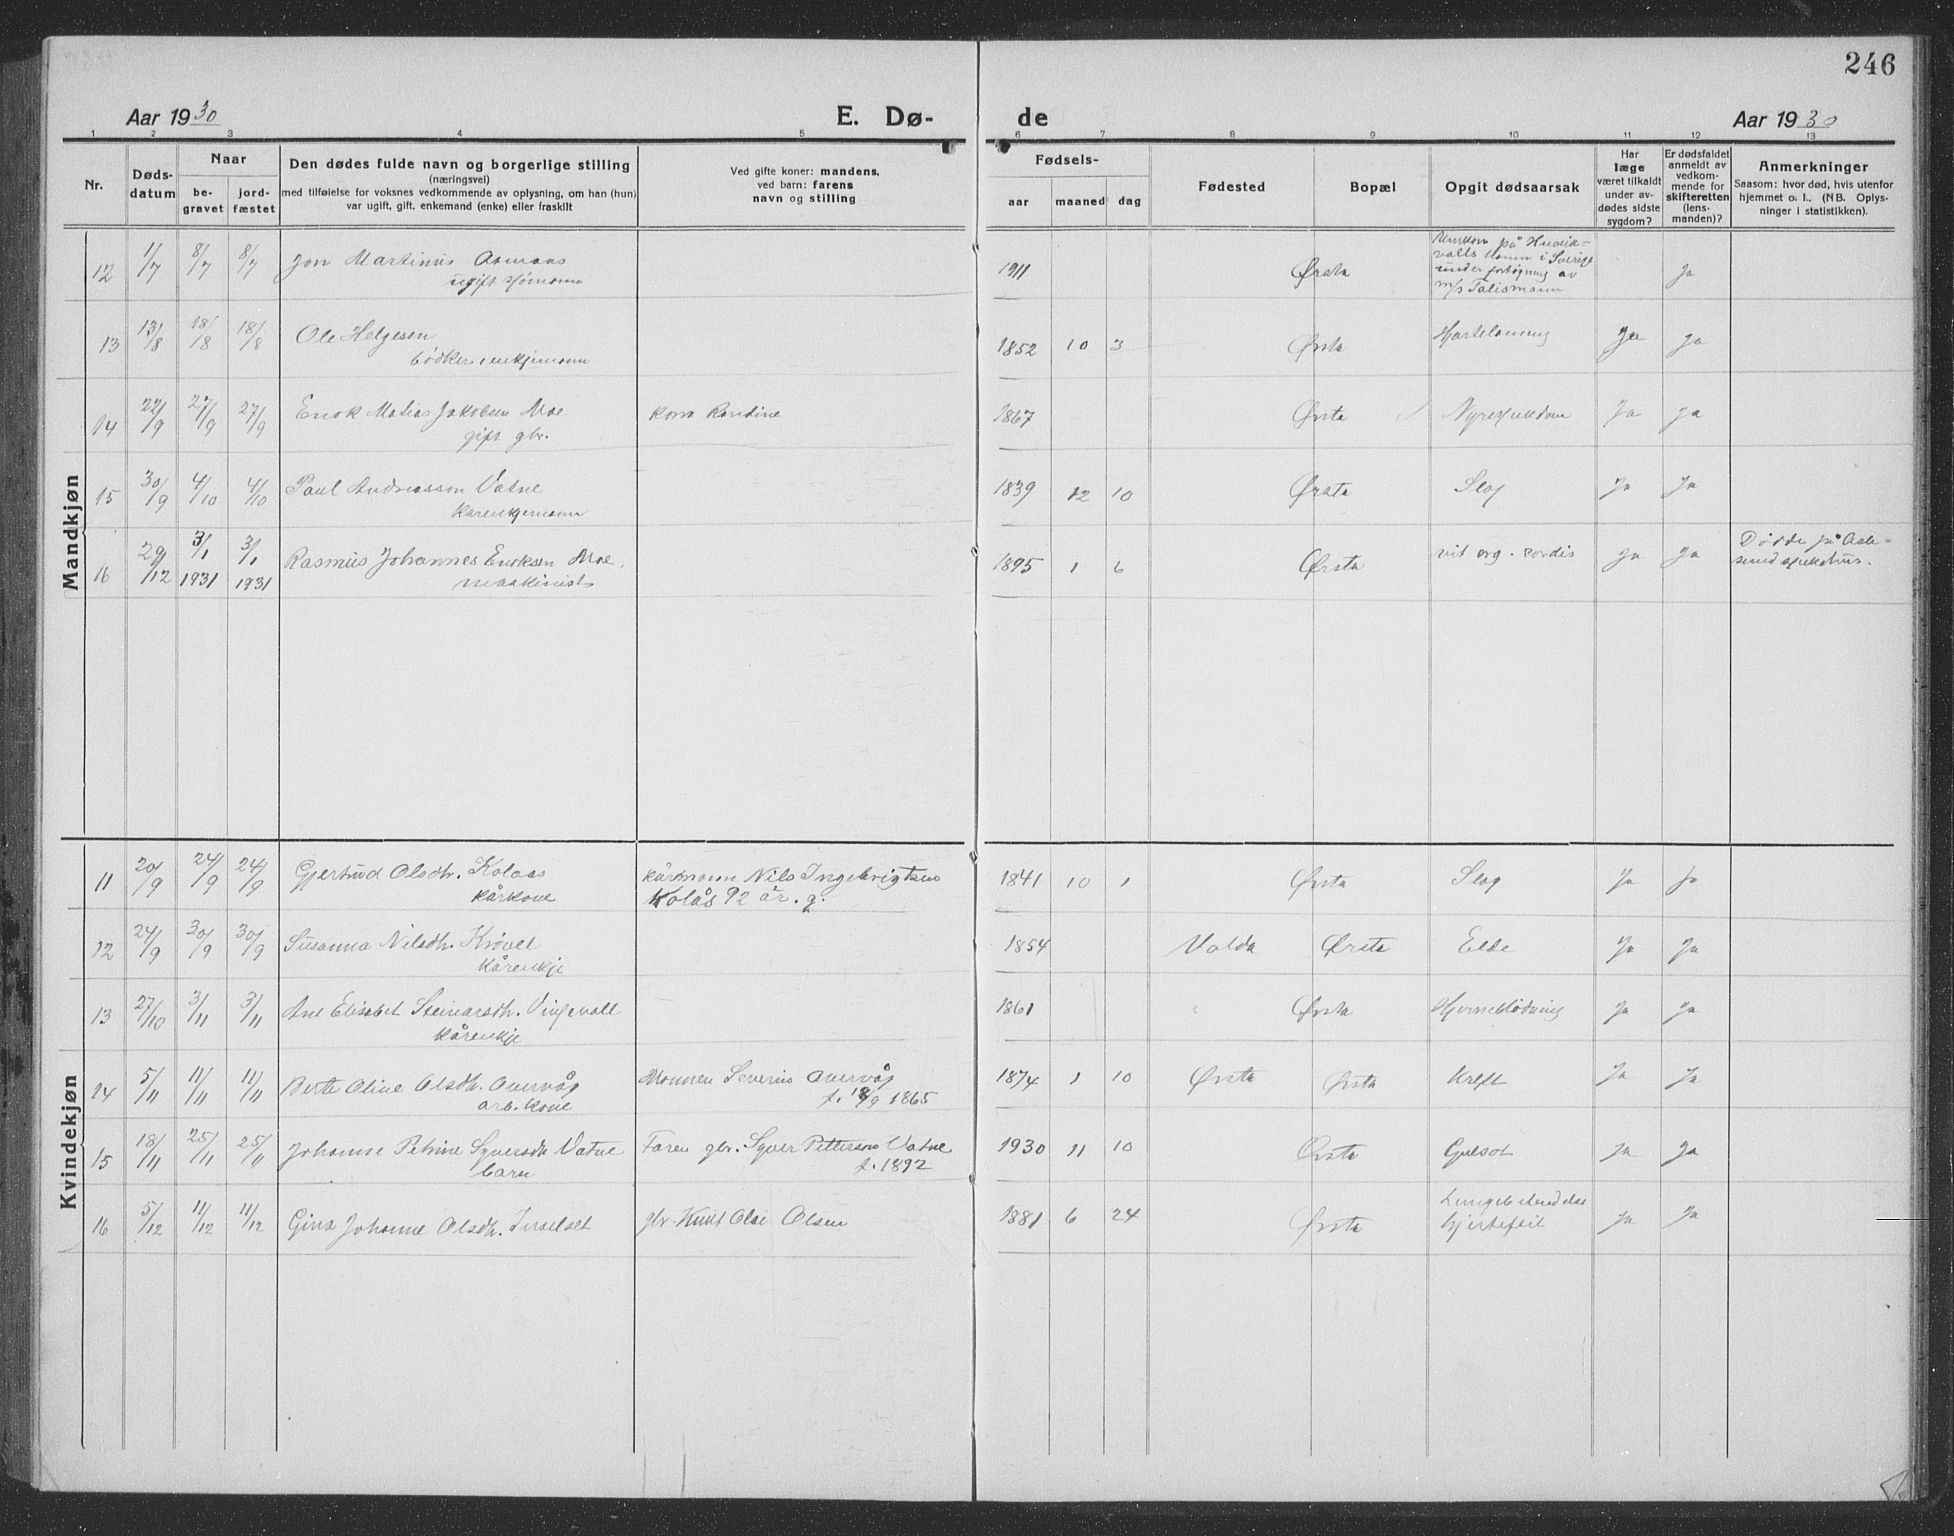 246
Aar 1930 E. Dø- de Aar 1930
1 2 3 4 5 6 7 8 9 10 11 12 13
Nr.
Døds-
datum
Naar
be-
gravet
jord-
fæstet
Den dødes fulde navn og borgerlige stilling
(næringsvei)
med tilføielse for voksnes vedkommende av oplysning, om han (hun)
var ugift, gift, enkemand (enke) eller fraskilt
Ved gifte koner: mandens,
ved barn: farens
navn og stilling
Fødsels-
aar maaned dag
Fødested
Bopæl
Opgit dødsaarsak
Har
læge
været tilkaldt
under av-
dødes sidste
sygdom?
Er dødsfaldet
anmeldt av
vedkom-
mende for
skifteretten
(lens-
manden)?
Anmerkninger
Saasom: hvor død, hvis utenfor
hjemmet o. l., (NB. Oplys-
ninger i statistikken).
Mandkjøn
12 1/7 8/7 8/7 Jon Martinus Aasmaas 1911 Ørsta Ja
ugift sjømann
Omkom på Hudik-
valls hamn i Sverige
under forhögning av
m/s Talismann
13 13/8 18/8 18/8 Ole Helgesen 1852 10 3 Ørsta Hjertelamning Ja Ja
bödker, enkjemann
14 22/9 27/9 27/9 Enok Matias Jakobsen Moe kona Randine 1867 Ørsta Nyresjukdom Ja Ja
gift gbr.
15 30/9 4/10 4/10 Paul Andreassen Vatne 1839 12 10 Ørsta Slag Ja Ja
kårenkjemann
16 29/12 3/1 1931 3/1 1931 Rasmus Johannes Enoksen Moe, 1895 1 6 Ørsta vit. org. cordis Ja Ja Dødde på Aale-
maskinist sund sjukehus.
Kvindekjøn
11 20/9 24/9 24/9 Gjertrud Olsdtr. Kolaas kårmann Nils Ingebrigtsen 1841 10 1 Ørsta Slag Ja Ja
kårkone Kolås 92 år. g.
12 24/9 30/9 30/9 Susanna Nilsdtr. Krøvel 1854 Volda Ørsta Elde Ja Ja
kårenkje
13 27/10 3/11 3/11 Ane Elisabet Steinarsdtr. 1861 Ørsta Hjerneblødning Ja Ja
kårenkje
14 5/11 11/11 11/11 Berte Oline Olsdtr. Overvåg Mannen Severin Overvåg 1874 1 10 Ørsta Ørsta Kreft Ja Ja
arb. kone f. 18/9 1865
15 18/11 25/11 25/11 Johanne Petrine Syversdtr Vatne Faren gbr. Syver Pettersen Vatne 1930 11 10 Ørsta Gulsot Ja Ja
barn f. 1892
16 5/12 11/12 11/12 Gina Johanne Olsdtr. gbr. Knut Olai Olsen 1881 6 24 Ørsta Lungebetendelse Ja Ja
hjertefeil